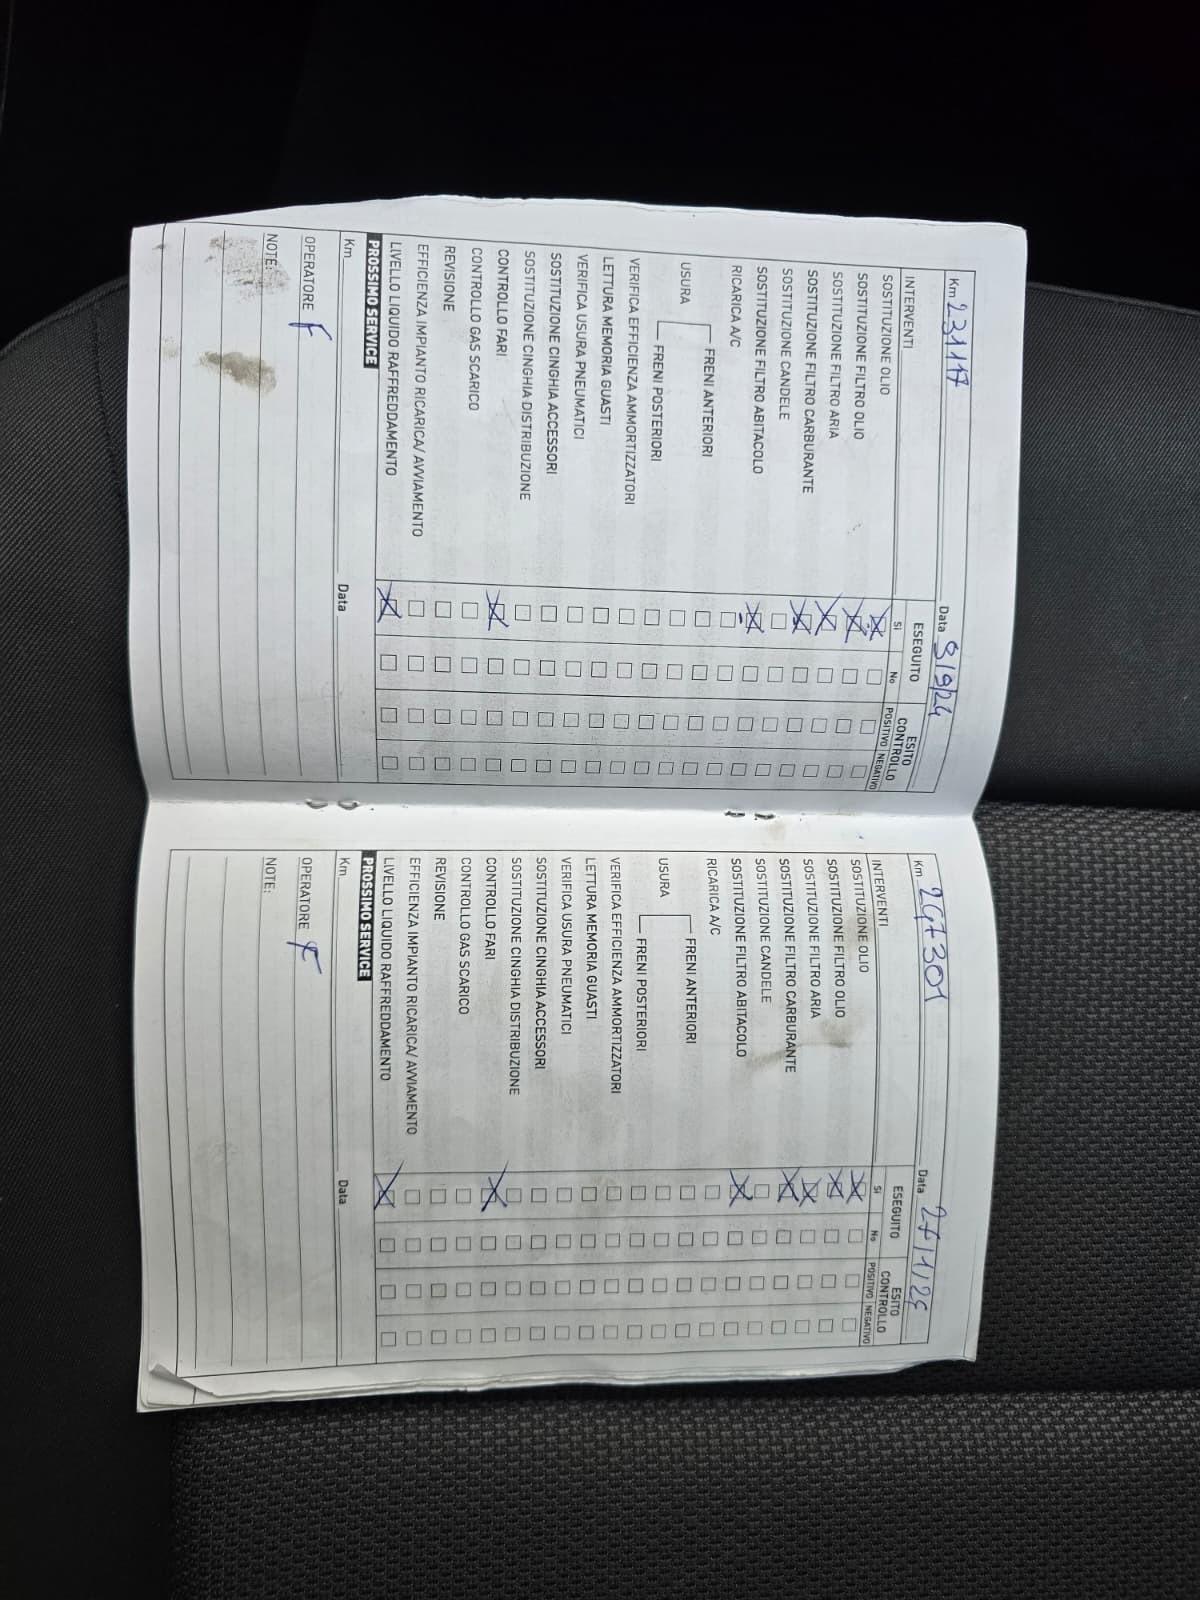 Km 231117 Data 9/9/24
INTERVENTI ESEGUITO ESITO CONTROLLO
SI No POSITIVO NEGATIVO
SOSTITUZIONE OLIO
SOSTITUZIONE FILTRO OLIO
SOSTITUZIONE FILTRO ARIA
SOSTITUZIONE FILTRO CARBURANTE
SOSTITUZIONE CANDELE
SOSTITUZIONE FILTRO ABITACOLO
RICARICA A/C
FRENI ANTERIORI
USURA
FRENI POSTERIORI
VERIFICA EFFICIENZA AMMORTIZZATORI
LETTURA MEMORIA GUASTI
VERIFICA USURA PNEUMATICI
SOSTITUZIONE CINGHIA ACCESSORI
SOSTITUZIONE CINGHIA DISTRIBUZIONE
CONTROLLO FARI
CONTROLLO GAS SCARICO
REVISIONE
EFFICIENZA IMPIANTO RICARICA/ AVVIAMENTO
LIVELLO LIQUIDO RAFFREDDAMENTO
PROSSIMO SERVICE
Km Data
OPERATORE F
NOTE:
Km 247301 Data
INTERVENTI ESEGUITO ESITO CONTROLLO
SI No POSITIVO NEGATIVO
SOSTITUZIONE OLIO
SOSTITUZIONE FILTRO OLIO
SOSTITUZIONE FILTRO ARIA
SOSTITUZIONE FILTRO CARBURANTE
SOSTITUZIONE CANDELE
SOSTITUZIONE FILTRO ABITACOLO
RICARICA A/C
FRENI ANTERIORI
USURA
FRENI POSTERIORI
VERIFICA EFFICIENZA AMMORTIZZATORI
LETTURA MEMORIA GUASTI
VERIFICA USURA PNEUMATICI
SOSTITUZIONE CINGHIA ACCESSORI
SOSTITUZIONE CINGHIA DISTRIBUZIONE
CONTROLLO FARI
CONTROLLO GAS SCARICO
REVISIONE
EFFICIENZA IMPIANTO RICARICA/ AVVIAMENTO
LIVELLO LIQUIDO RAFFREDDAMENTO
PROSSIMO SERVICE
Km Data
OPERATORE
NOTE: